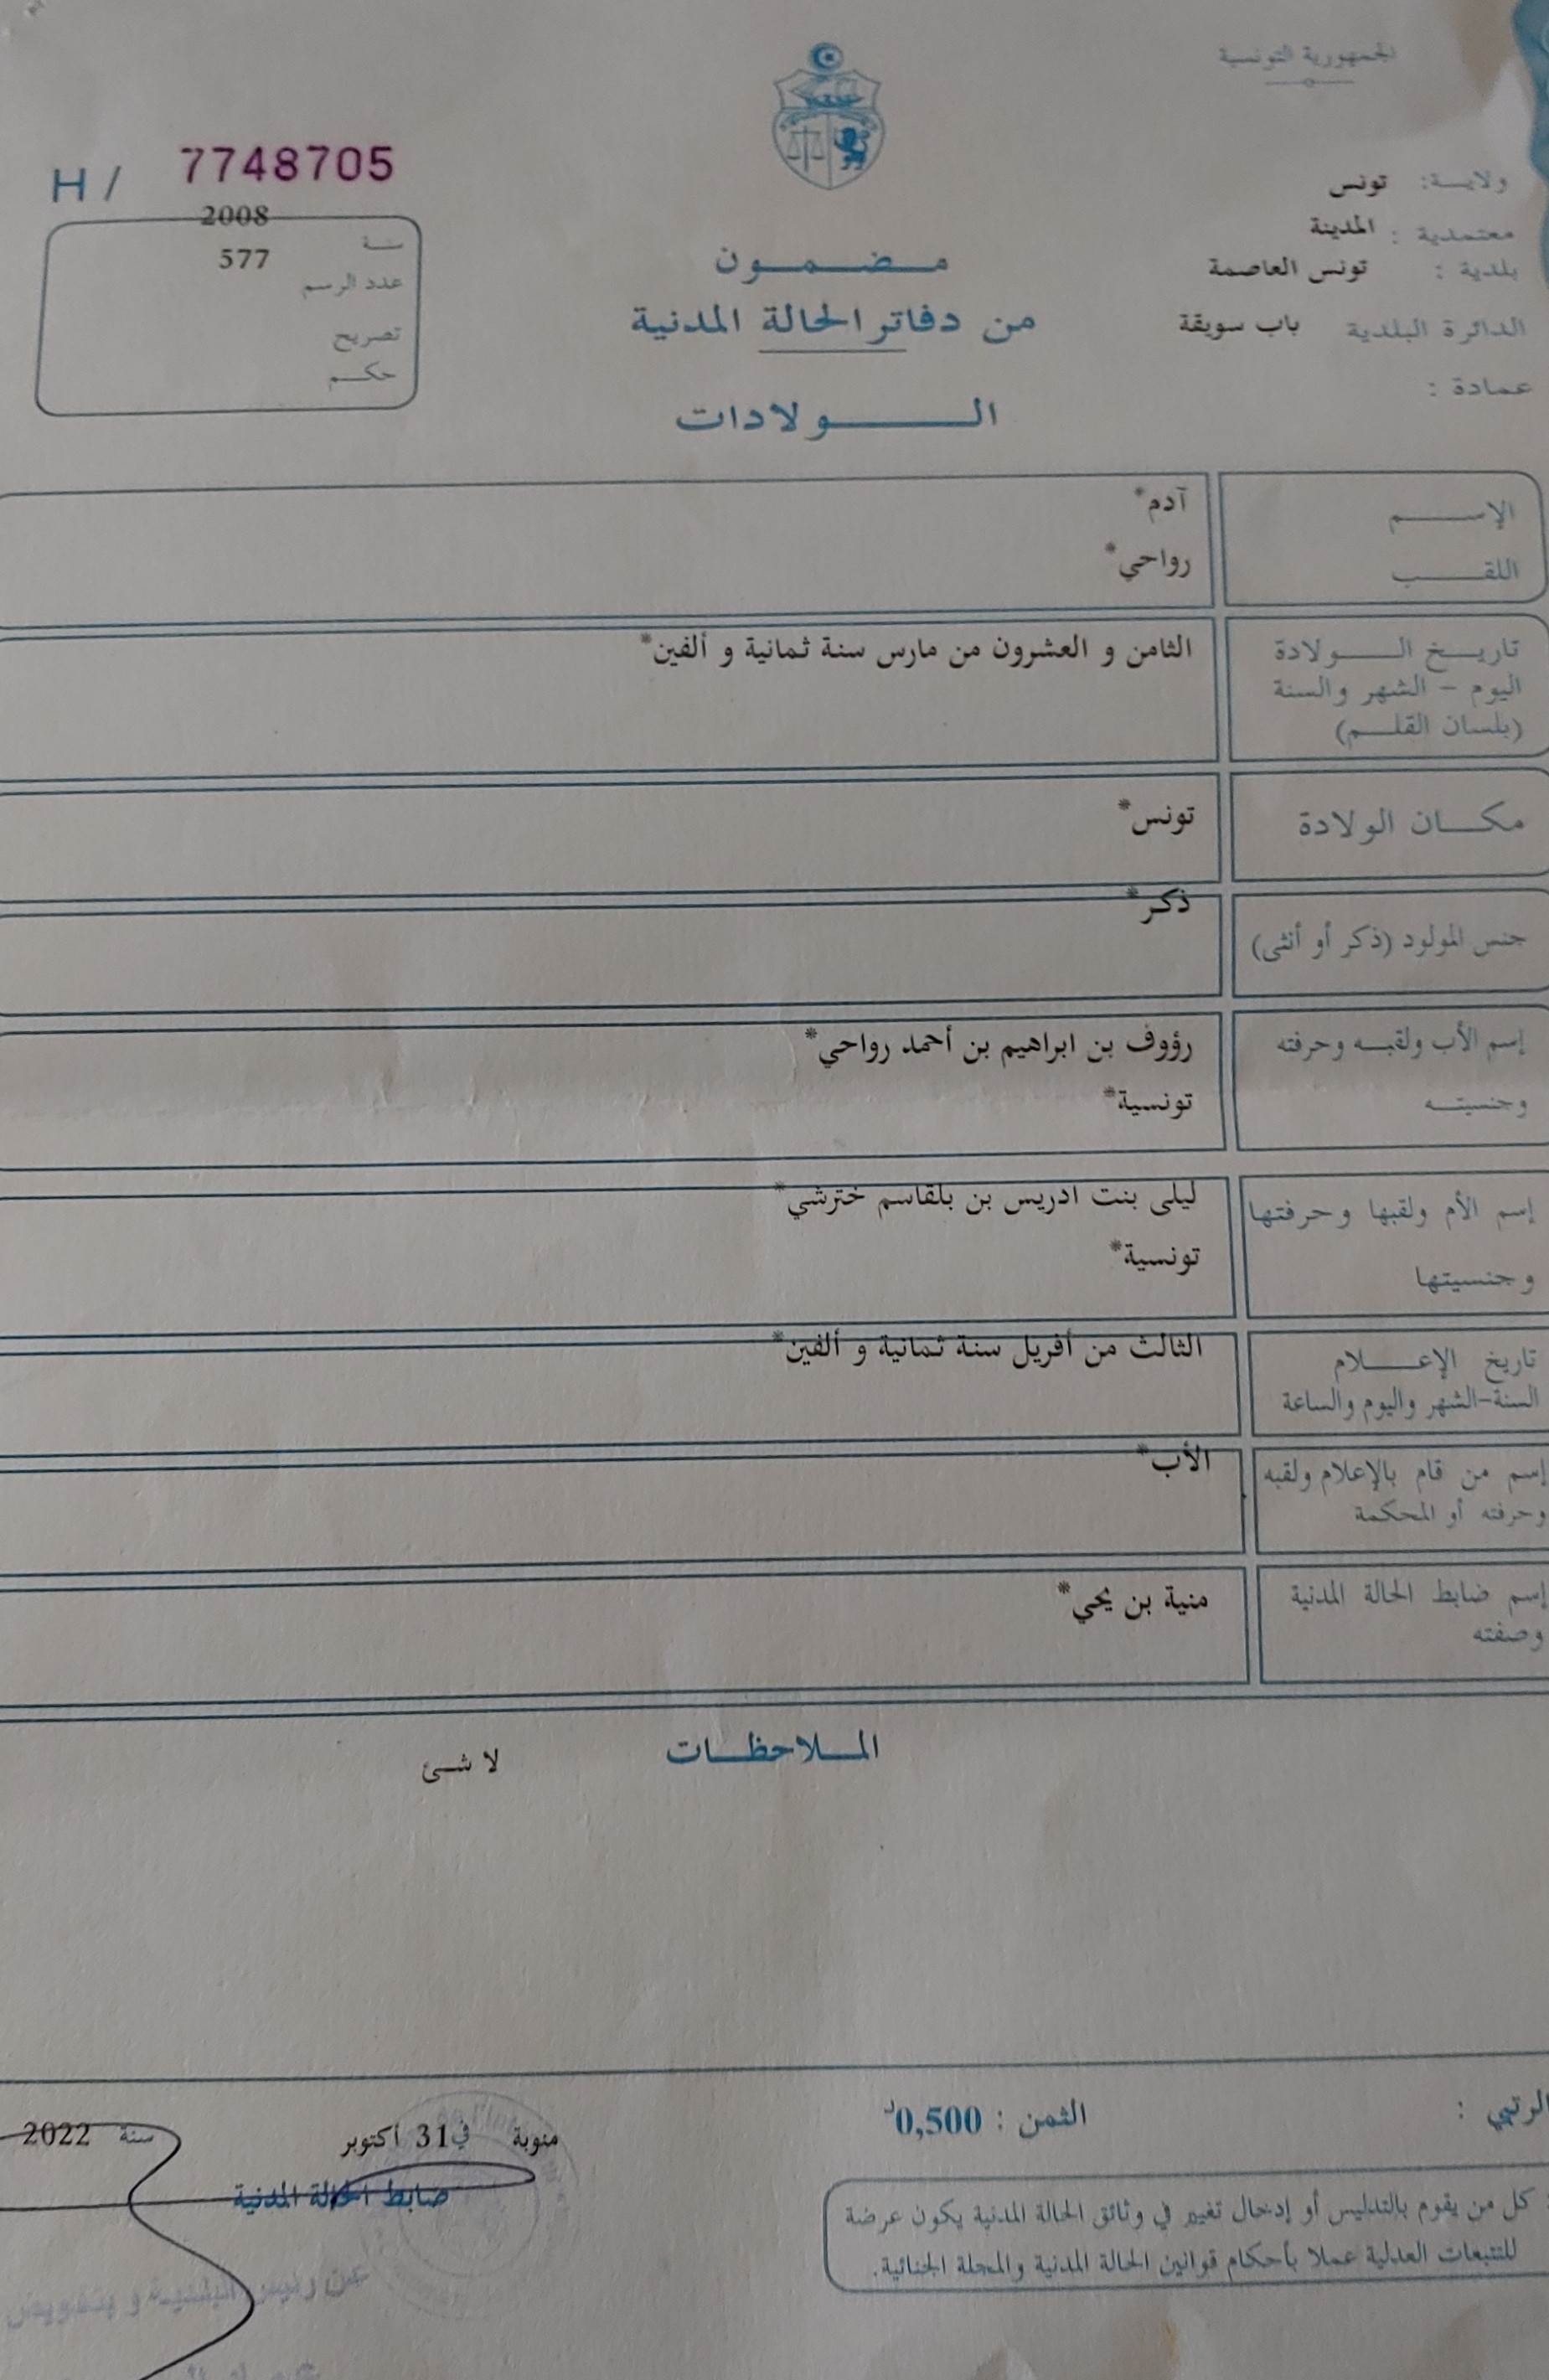 الجمهورية التونسية
ولايـــة: تونس
معتمدية : المدينة
بلدية : تونس العاصمة
الدائرة البلدية باب سويقة
عمادة :
H / 7748705
سنة 2008
عدد الرسم 577
تصريح
حكم
مضمون
من دفاتر الحالة المدنية
الولادات
الإسم آدم*
اللقب رواحي*
تاريخ الولادة الثامن و العشرون من مارس سنة ثمانية و ألفين*
اليوم – الشهر والسنة
(بلسان القلم)
مكان الولادة تونس*
جنس المولود (ذكر أو أنثى) ذكر*
إسم الأب ولقبه وحرفته رؤوف بن ابراهيم بن أحمد رواحي*
وجنسيته تونسية*
إسم الأم ولقبها وحرفتها ليلى بنت ادريس بن بلقاسم خترشي*
وجنسيتها تونسية*
تاريخ الإعلام الثالث من أفريل سنة ثمانية و ألفين*
السنة-الشهر واليوم والساعة
إسم من قام بالإعلام ولقبه الأب*
وحرفته أو المحكمة
إسم ضابط الحالة المدنية منية بن يحي*
وصفته
الملاحظات لا شئ
الثمن : 0,500د
منوبة في 31 اكتوبر سنة 2022
ضابط الحالة المدنية
كل من يقوم بالتدليس أو إدخال تغيير في وثائق الحالة المدنية يكون عرضة
للتتبعات العدلية عملا بأحكام قوانين الحالة المدنية والمجلة الجنائية.
عن رئيس البلدية و بتفويض